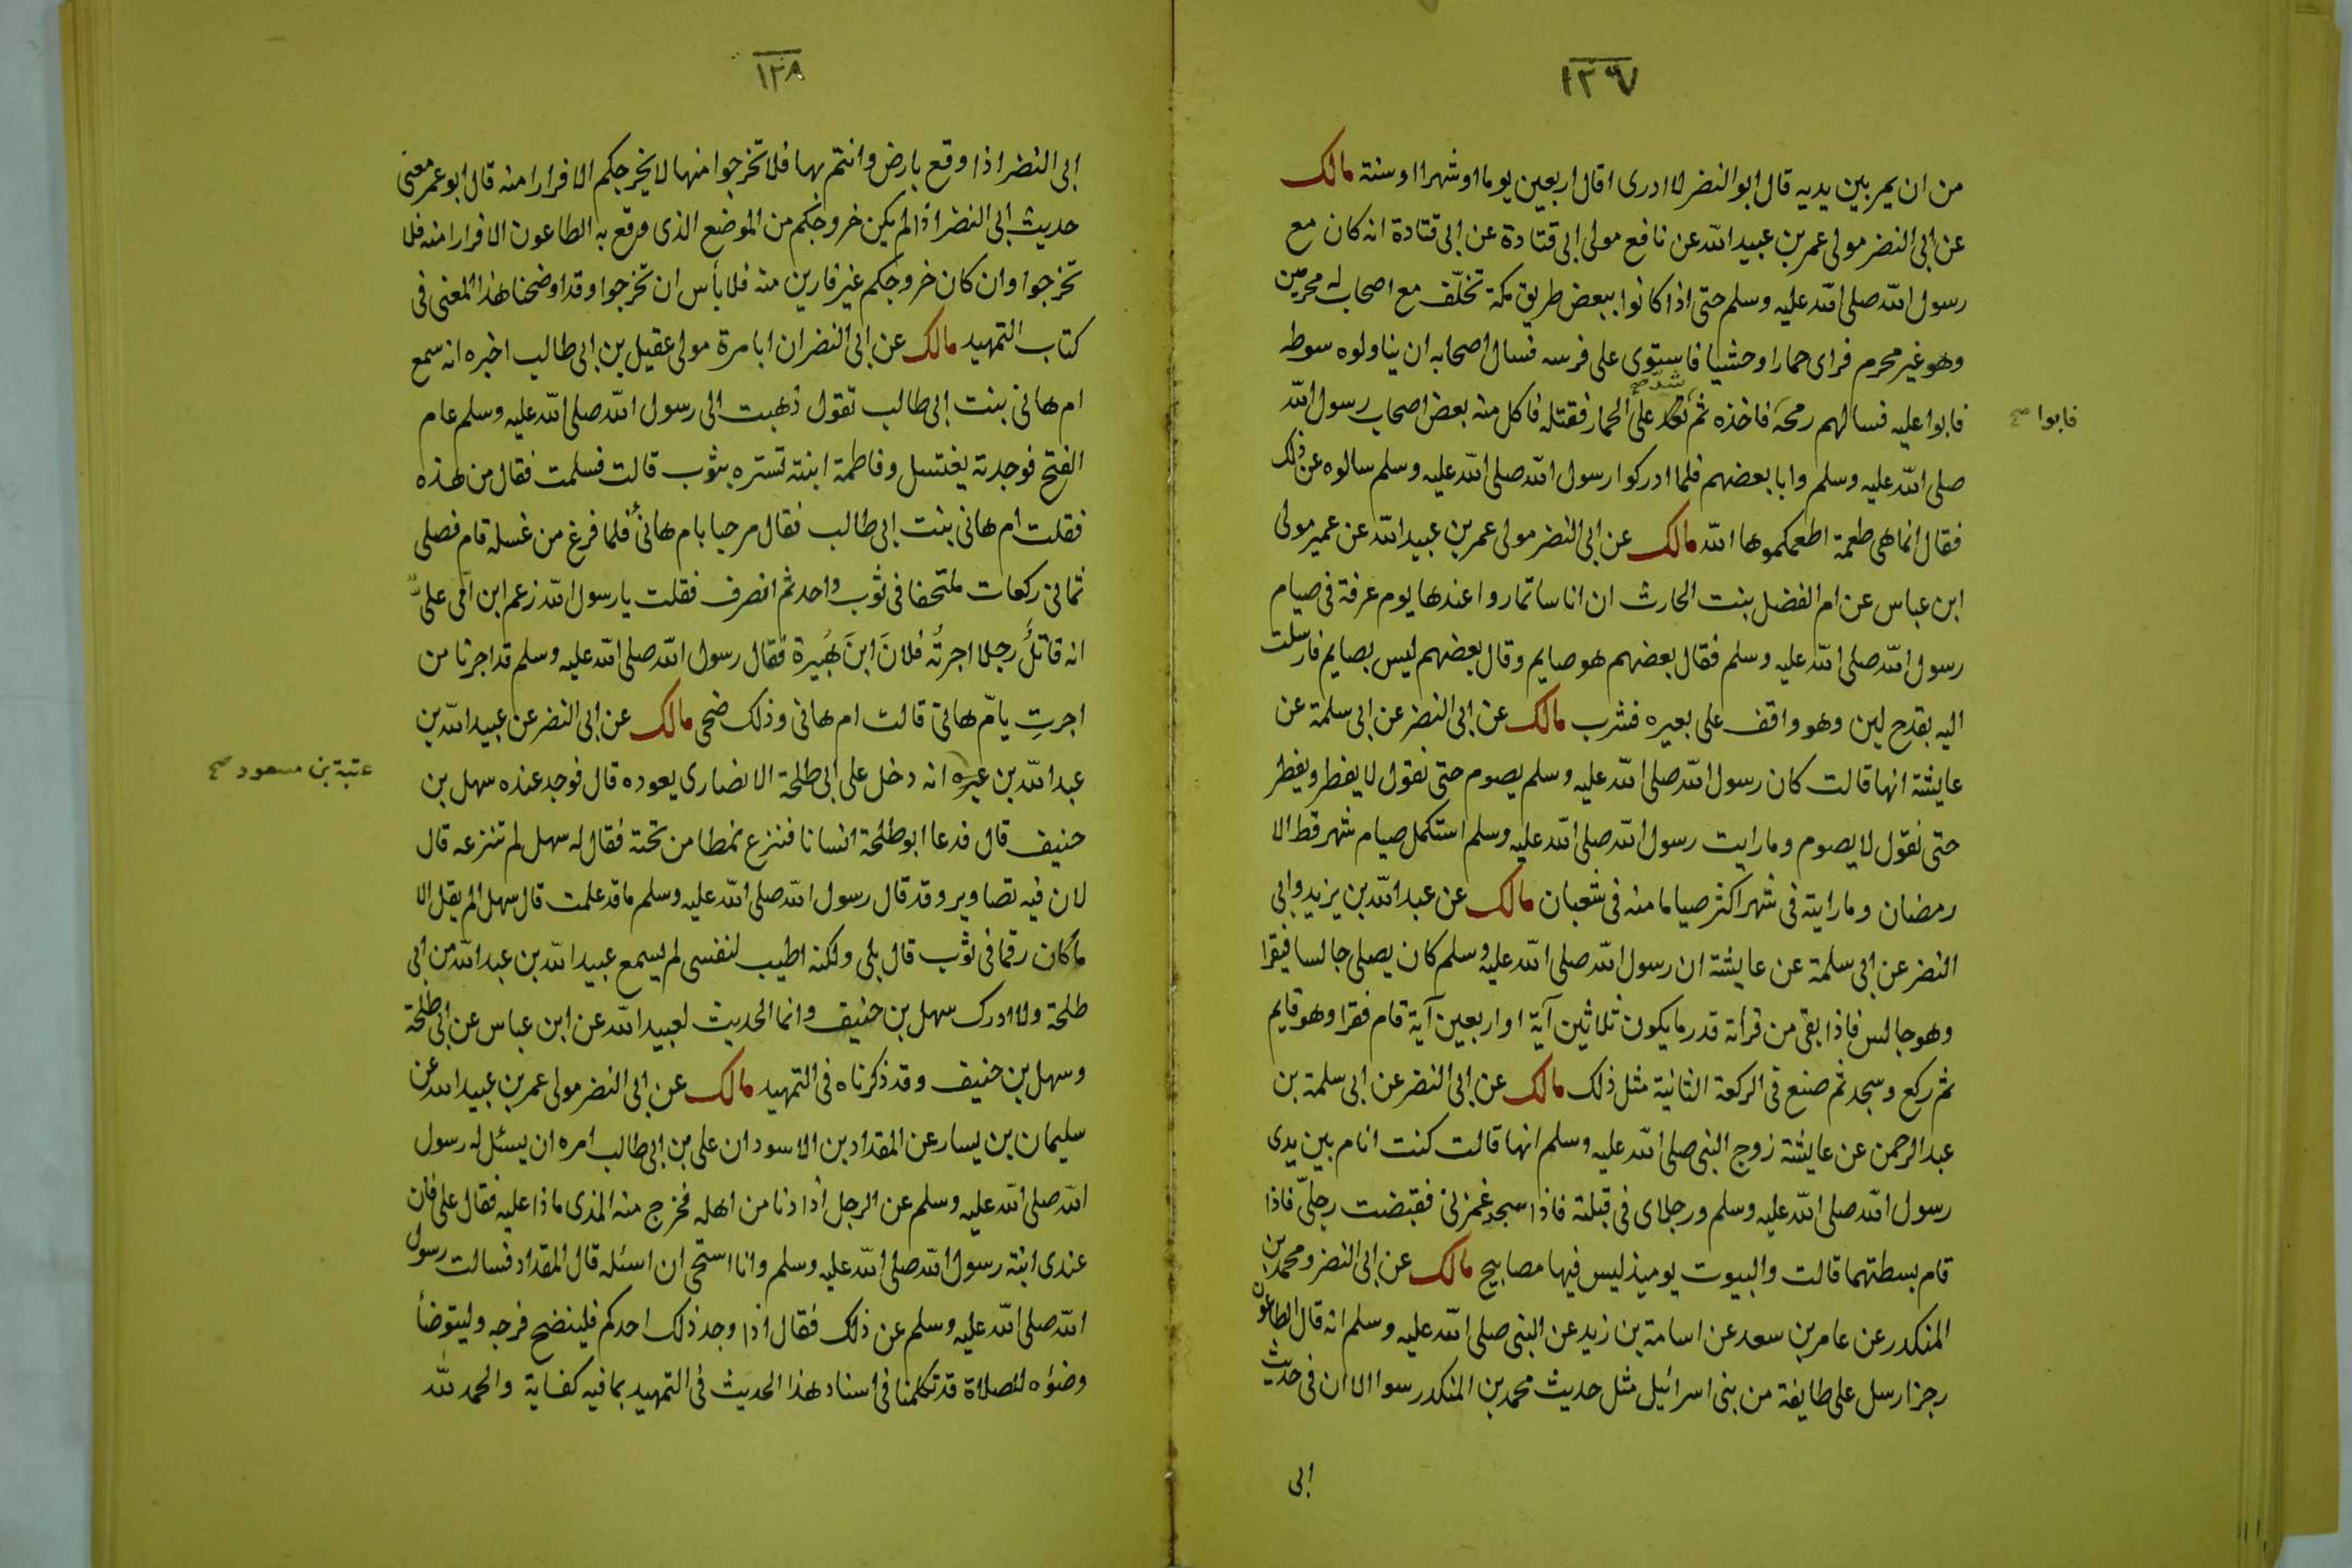 ١٢٧
من ان يمر بين يديه قال ابو النضر لا ادرى اقال اربعين يوما او شهرا او سنة مالك
عن ابى النضر مولى عمر بن عبيد الله عن نافع مولى ابى قتادة عن ابى قتادة انه كان مع
رسول الله صلى الله عليه وسلم حتى اذا كانوا ببعض طريق مكة تخلّف مع اصحاب له محرمين
وهو غير محرم فراى حمارا وحشيا فاستوى على فرسه فسال اصحابه ان يناولوه سوطه
شدّ صح
فابوا عليه فسالهم رمحه فاخذه ثم على الحمار فقتله فاكل منه بعض اصحاب رسول الله
فابوا صح
صلى الله عليه وسلم وابا بعضهم فلما ادركوا رسول الله صلى الله عليه وسلم سالوه عن ذلك
فقال انما هى طعمة اطعمكموها الله مالك عن ابى النضر مولى عمر بن عبيد الله عن عمير مولى
ابن عباس عن ام الفضل بنت الحارث ان اناسا تماروا عندها يوم عرفة فى صيام
رسول الله صلى الله عليه وسلم فقال بعضهم هو صايم وقال بعضهم ليس بصايم فارسلت
اليه بقدح لبن وهو واقف على بعيره فشرب مالك عن ابى النضر عن ابى سلمة عن
عايشة انها قالت كان رسول الله صلى الله عليه وسلم يصوم حتى نقول لا يفطر ويفطر
حتى نقول لا يصوم وما رايت رسول الله صلى الله عليه وسلم استكمل صيام شهر قط الا
رمضان وما رايته فى شهر اكثر صياما منه فى شعبان مالك عن عبد الله بن يزيد وابى
النضر عن ابى سلمة عن عايشة ان رسول الله صلى الله عليه وسلم كان يصلى جالسا فيقرا
وهو جالس فاذا بقى من قرأته قدر ما يكون ثلاثين آية او اربعين آية قام فقرا وهو قايم
ثم ركع وسجد ثم صنع فى الركعة الثانية مثل ذلك مالك عن ابى النضر عن ابى سلمة بن
عبد الرحمن عن عايشة زوج النبى صلى الله عليه وسلم انها قالت كنت انام بين يدى
رسول الله صلى الله عليه وسلم ورجلاى فى قبلته فاذا سجد غمزنى فقبضت رجلىّ فاذا
قام بسطتهما قالت والبيوت يوميذ ليس فيها مصابيح مالك عن ابى النضر ومحمد بن
المنكدر عن عامر بن سعد عن اسامة بن زيد عن النبى صلى الله عليه وسلم انه قال الطاعون
رجز ارسل على طايفة من بنى اسرائيل مثل حديث محمد بن المنكدر سوا الا ان فى حديث
ابى
١٢٨
ابى النضر اذا وقع بارض وانتم بها فلا تخرجوا منها لا يخرجكم الا فرارا منه قال ابو عمر معنى
حديث ابى النضر اذا لم يكن خروجكم من الموضع الذى وقع به الطاعون الا فرارا منه فلا
تخرجوا وان كان خروجكم غير فارين منه فلا بأس ان تخرجوا وقد اوضحنا هذا المعنى فى
كتاب التمهيد مالك عن ابى النضر ان ابا مرة مولى عقيل بن ابى طالب اخبره انه سمع
ام هانى بنت ابى طالب تقول ذهبت الى رسول الله صلى الله عليه وسلم عام
الفتح فوجدته يغتسل وفاطمة ابنته تستره بثوب قالت فسلمت فقال من هذه
فقلت ام هانى بنت ابى طالب فقال مرحبا بام هانئ فلما فرغ من غسله قام فصلى
ثمانى ركعات ملتحفا فى ثوب واحد ثم انصرف فقلت يا رسول الله زعم ابن امى علىّ
انه قاتلٌ رجلا اجرتُه فلانَ ابنَ هُبيرة فقال رسول الله صلى الله عليه وسلم قد اجرنا من
اجرتِ يامّ هانئ قالت ام هانى وذلك ضحى مالك عن ابى النضر عن عبيد الله بن
عبد الله بن انه دخل على ابى طلحة الانصارى يعوده قال فوجد عنده سهل بن
عتبة بن مسعود صح
حنيف قال فدعا ابو طلحة انسانا فنزع نمطا من تحته فقال له سهل لم تنزعه قال
لان فيه تصاوير وقد قال رسول الله صلى الله عليه وسلم ما قد علمت قال سهل الم يقل الا
ما كان رقما فى ثوب قال بلى ولكنه اطيب لنفسى لم يسمع عبيد الله بن عبد الله من ابى
طلحة ولا ادرك سهل بن حنيف وانما الحديث لعبيد الله عن ابن عباس عن ابى طلحة
وسهل بن حنيف وقد ذكرناه فى التمهيد مالك عن ابى النضر مولى عمر بن عبيد الله عن
سليمان بن يسار عن المقداد بن الاسود ان على بن ابى طالب امره ان يسئل له رسول
الله صلى الله عليه وسلم عن الرجل اذا دنا من اهله فخرج منه المذى ماذا عليه فقال على فان
عندى ابنة رسول الله صلى الله عليه وسلم وانا استحى ان اسئله قال المقداد فسالت رسول
الله صلى الله عليه وسلم عن ذلك فقال اذا وجد ذلك احدكم فلينضح فرجه وليتوضأ
وضؤه للصلاة قد تكلمنا فى اسناد هذا الحديث فى التمهيد بما فيه كفاية والحمد لله